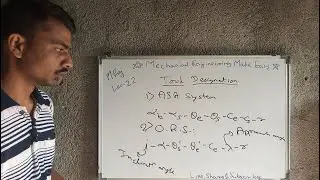 ☆ Mechanical Engineering Made Easy ☆
Lec-22
Tool Designation
1) ASA System
αb - αs - θe - θs - Ce - Cs - r
2) O.R.S:-
i - α - θi - θi' - Ce - λ - r
Approach angle
Inclination angle
Like, Share & Subscribe